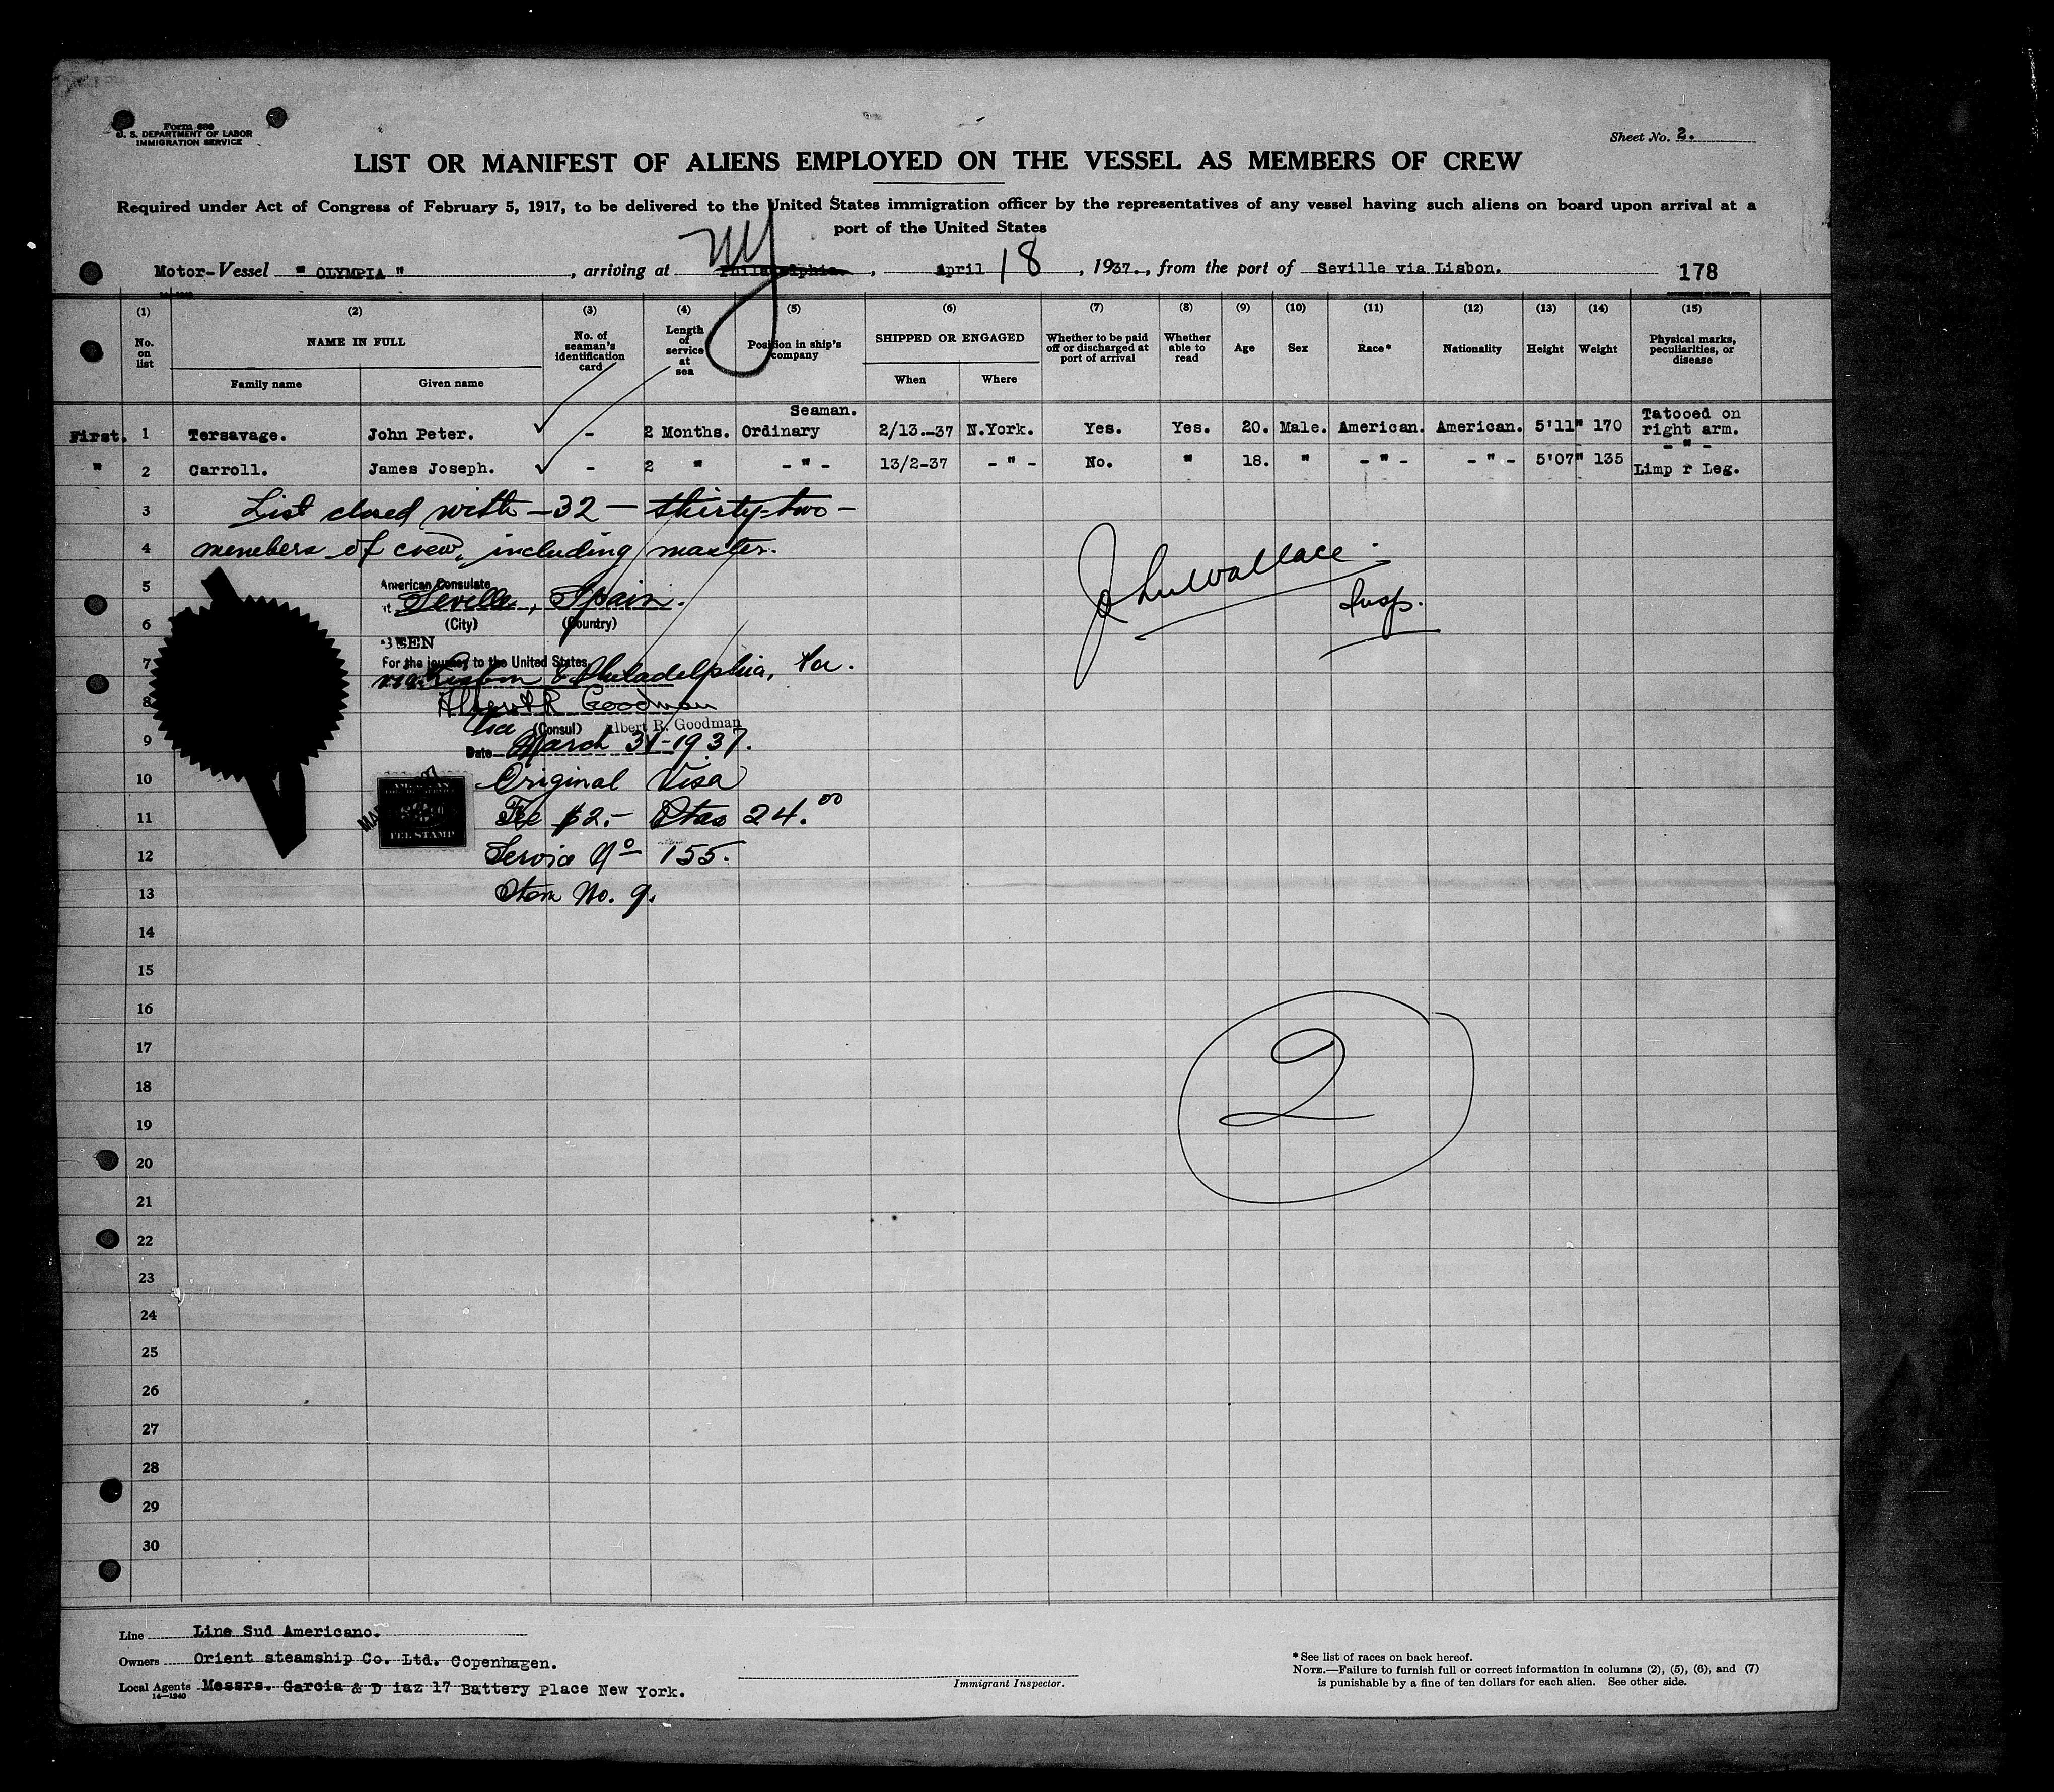 Form 680
U. S. DEPARTMENT OF LABOR
IMMIGRATION SERVICE
Sheet No. 2.
LIST OR MANIFEST OF ALIENS EMPLOYED ON THE VESSEL AS MEMBERS OF CREW
Required under Act of Congress of February 5, 1917, to be delivered to the United States immigration officer by the representatives of any vessel having such aliens on board upon arrival at a
port of the United States
NY
Motor-Vessel " OLYMPIA ", arriving at Philadelphia., April 18, 1937., from the port of Seville via Lisbon. 178
(1) (2) (3) (4) (5) (6) (7) (8) (9) (10) (11) (12) (13) (14) (15)
No. on list NAME IN FULL No. of seaman's identification card Length of service at sea Position in ship's company SHIPPED OR ENGAGED Whether to be paid off or discharged at port of arrival Whether able to read Age Sex Race* Nationality Height Weight Physical marks, peculiarities, or disease
Family name Given name When Where
First. 1 Tersavage. John Peter. - 2 Months. Ordinary Seaman. 2/13.-37 N.York. Yes. Yes. 20. Male. American. American. 5'11" 170 Tatooed on right arm.
" 2 Carroll. James Joseph. - 2 " -"- 13/2-37 -"- No. " 18. " -"- -"- 5'07" 135 -"- Limp r Leg.
3 List closed with -32- thirty-two-
4 members of crew, including master.
John Wallace
Insp.
5 American Consulate
at Seville, Spain.
6 (City) (Country)
SEEN
7 For the journey to the United States
via Lisbon & Philadelphia, Pa.
8 Albert R Goodman
Vice (Consul) Albert R. Goodman
9 Date March 31-1937.
10 Original Visa
AMERICAN
FEE STAMP
11 Fee $2.- Ptas 24.00
12 Service No 155.
13 Item No. 9.
14
15
16
17
2
18
19
20
21
22
23
24
25
26
27
28
29
30
Line Line Sud Americano.
Owners Orient steamship Co. Ltd. Copenhagen.
Local Agents Messrs. Garcia & D iaz 17 Battery Place New York.
14—1240
Immigrant Inspector.
*See list of races on back hereof.
NOTE.—Failure to furnish full or correct information in columns (2), (5), (6), and (7)
is punishable by a fine of ten dollars for each alien. See other side.